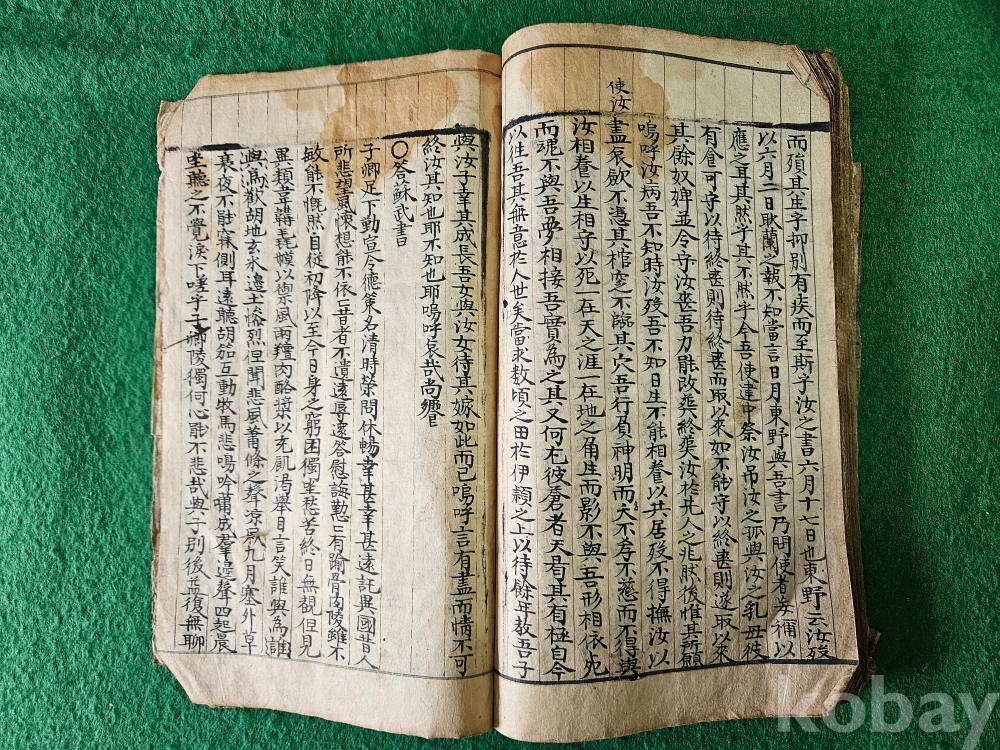 而殞其生乎抑別有疾而至斯乎汝之書六月十七日也東野云汝歿
以六月二日耿蘭之報不知當言日月東野與吾書乃問使者妄稱以
應之耳其然乎其不然乎今吾使建中祭汝吊汝之孤與汝之乳母彼
有食可守以待終喪則待終喪而取以來如不能守以終喪則遂取以來
其餘奴婢並令守汝喪吾力能改葬終葬汝於先人之兆然後惟其所願
嗚呼汝病吾不知時汝歿吾不知日生不能相養以共居歿不得撫汝以
使汝
盡哀斂不憑其棺窆不臨其穴吾行負神明而夭不孝不慈而不得與
汝相養以生相守以死一在天之涯一在地之角生而影不與吾形相依死
而魂不與吾夢相接吾實爲之其又何尤彼蒼者天曷其有極自今
以往吾其無意於人世矣當求数頃之田於伊潁之上以待餘年敎吾子
與汝子幸其成長吾女與汝女待其嫁如此而已嗚呼言有盡而情不可
終汝其知也耶不知也耶嗚呼哀哉尚饗
〇答蘇武書
子卿足下勤宣令德策名清時榮問休暢幸甚幸甚遠託異國昔人
所悲望風懷想能不依〻昔者不遺遠辱還答慰誨勤〻有踰骨肉陵雖不
敏能不慨然自從初降以至今日身之窮困獨坐愁苦終日無覩但見
異類韋韝毳幙以禦風雨羶肉酪漿以充飢渴舉目言笑誰與爲誰
與爲歡胡地玄氷邊土慘烈但聞悲風蕭條之聲凉秋九月塞外草
衰夜不能寐側耳遠聽胡笳互動牧馬悲鳴吟嘯成羣邊聲四起晨
坐聽之不覺淚下嗟乎子卿陵獨何心能不悲哉與子別後益復無聊
kobay